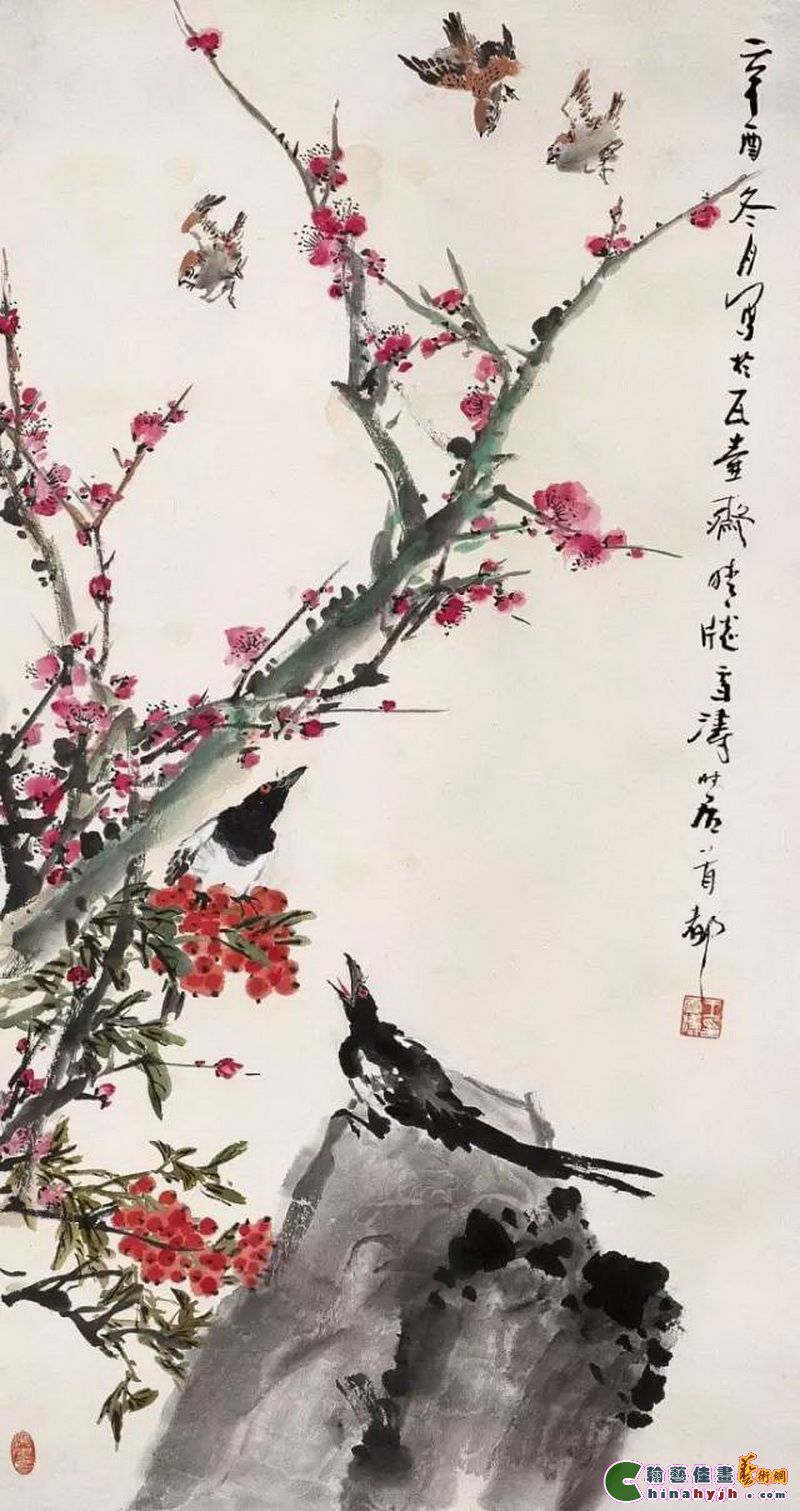 辛酉冬月寫於瓦壺齋晴牕雪濤時居首都
翰藝佳畫藝術網
Chinahyjh.com